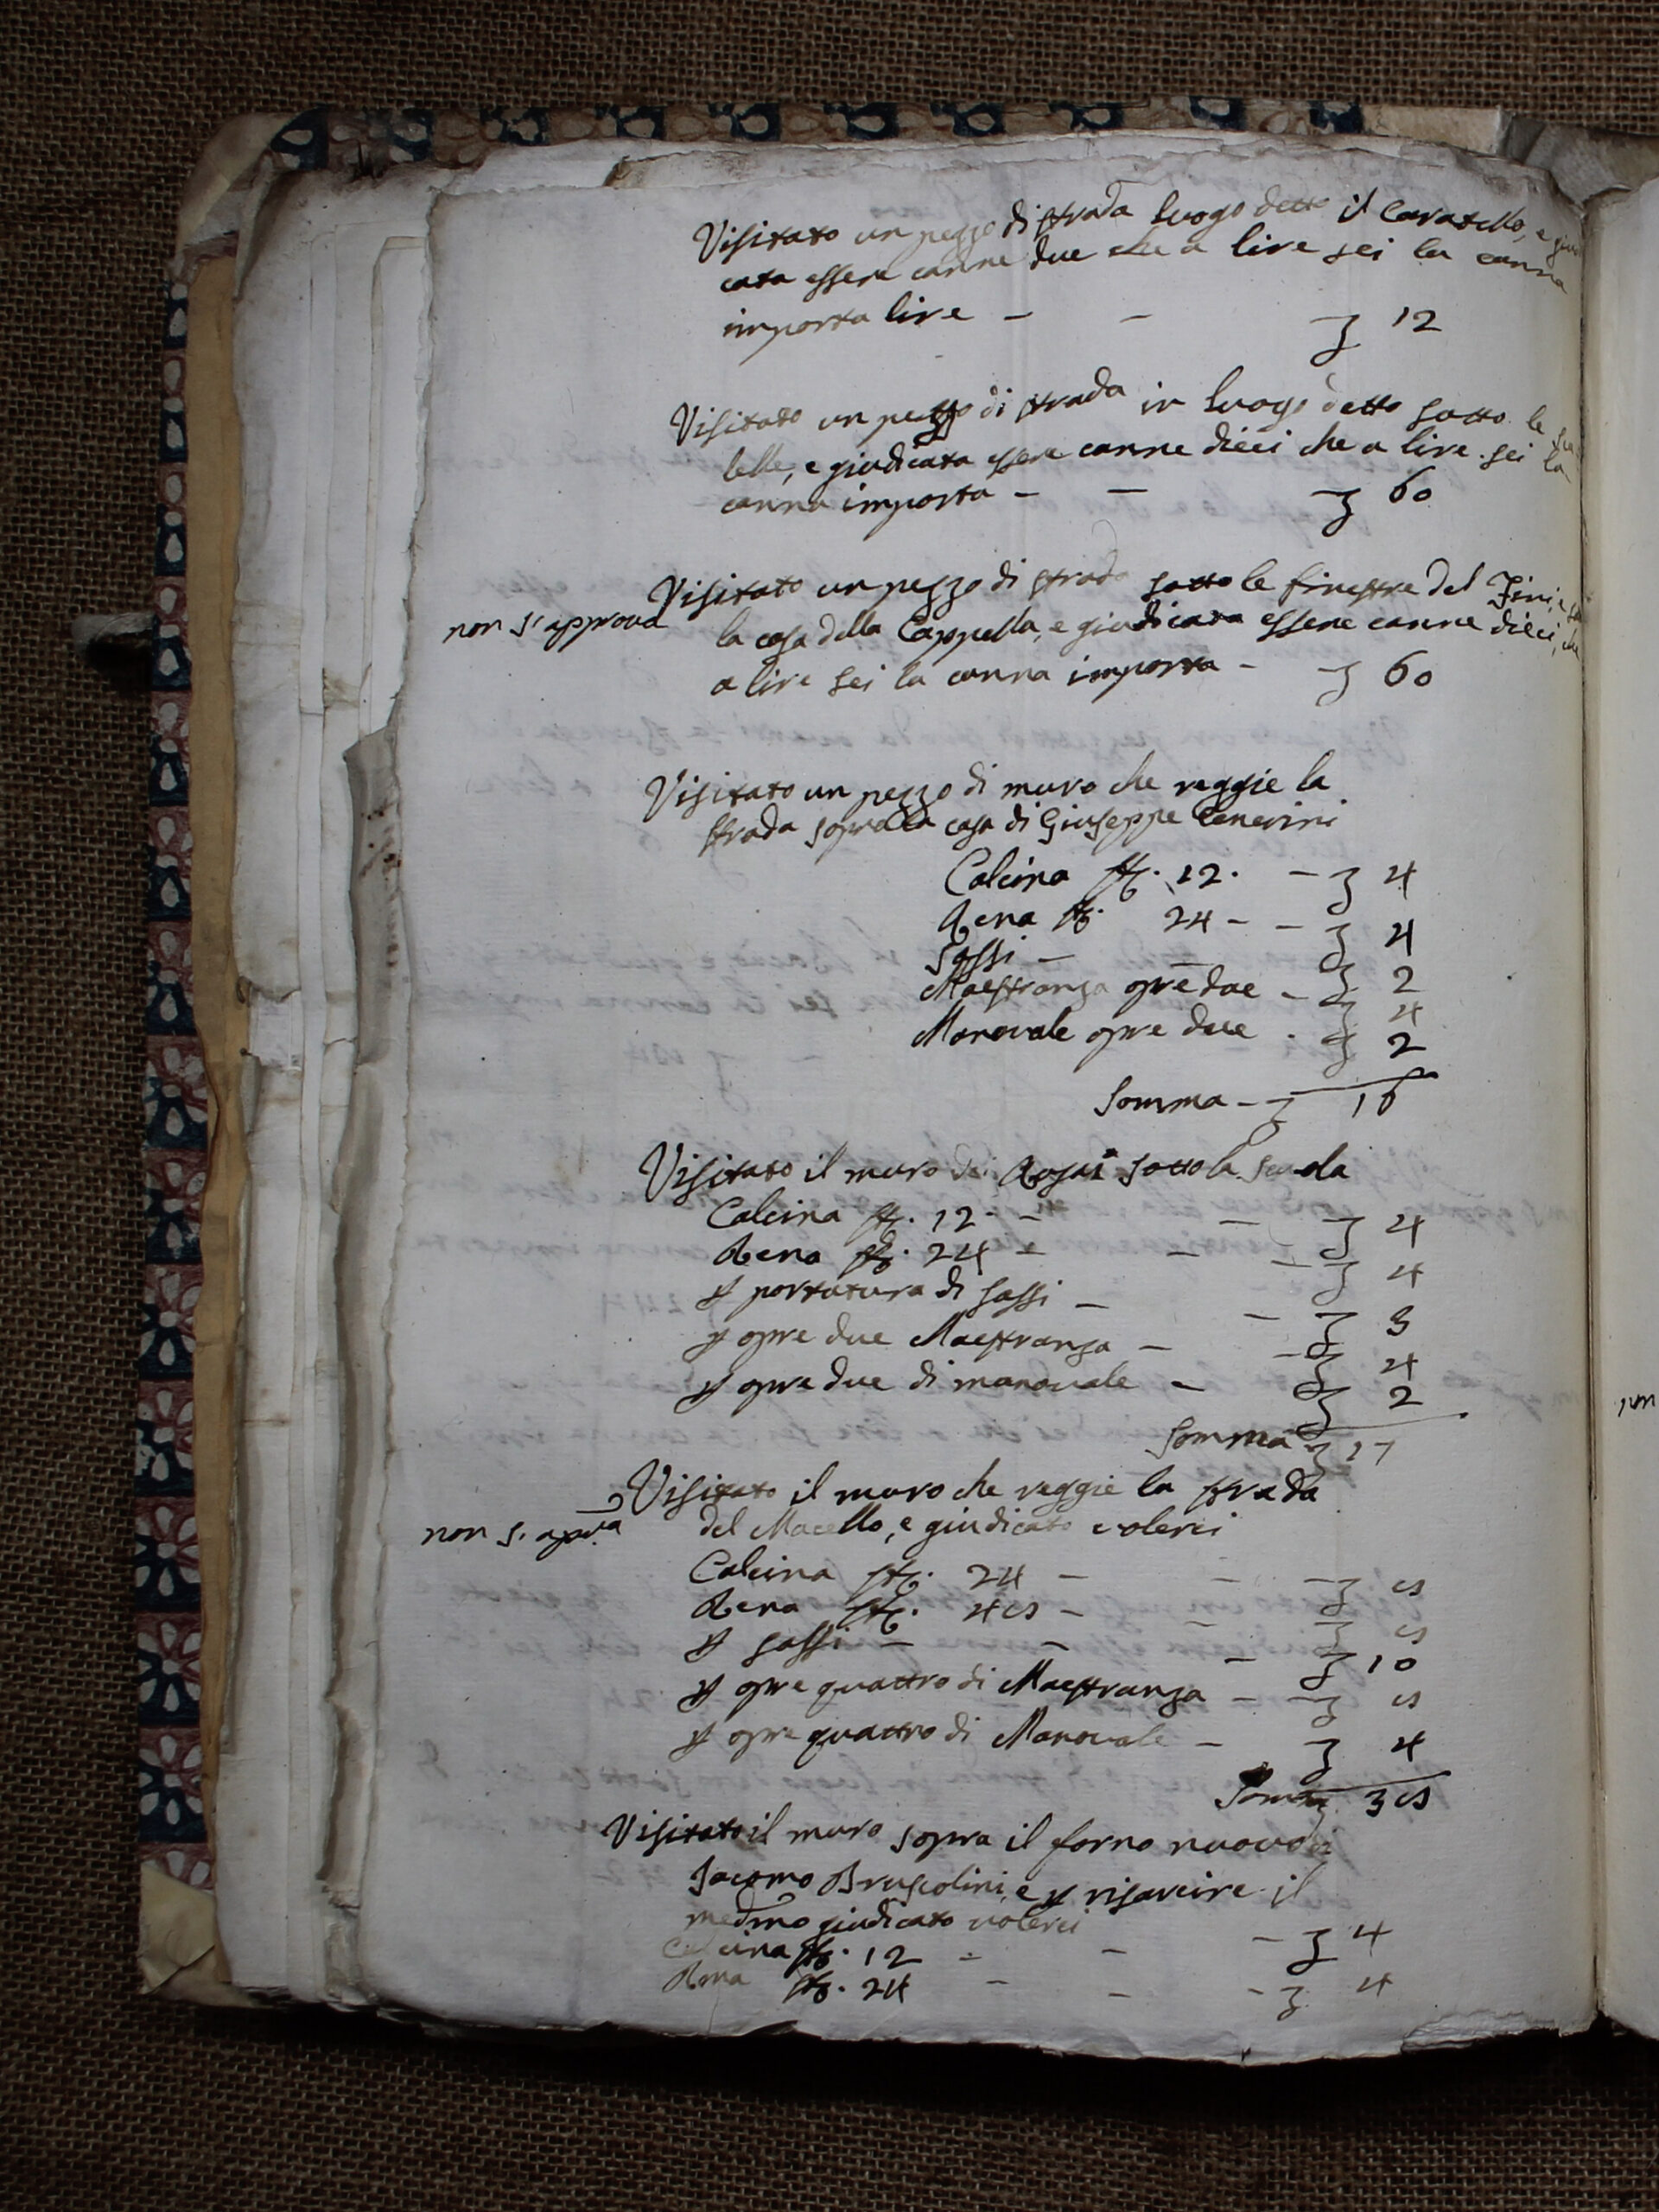 Visitato un pezzo di strada luogo detto il Caratello, e giudi
cata essere canne due che a lire sei la canna
importa lire - - 12
Visitato un pezzo di strada in luogo detto sotto le
belle, e giudicata essere canne dieci che a lire sei la
canna importa - - 60
non s'approva Visitato un pezzo di strada sotto le finestre del Fini, e
la casa della Cappella, e giudicata essere canne dieci, che
a lire sei la canna importa - 60
Visitato un pezzo di muro che reggie la
strada sopra la casa di Giuseppe Cenerini
Calcina st. 12. - 4
Rena st. 24 - - 4
Sassi - - 2
Maestranza opre due - 4
Manovale opre due - 2
Somma - 16
Visitato il muro dei Rosai sotto la scuola
Calcina st. 12 - - 4
Rena st. 24 - - - 4
p portatura di sassi - - 3
p opre due Maestranza - - 4
p opre due di manovale - 2
Somma 17
Visitato il muro che reggie la strada
non s. appr.a del Macello, e giudicato volerci
Calcina st. 24 - - - 8
Rena st. 48 - - 8
p sassi - - - 10
p opre quattro di Maestranza - - 8
p opre quattro di Manovale - 4
Somma 38
Visitato il muro sopra il forno nuovo di
Jacomo Bruscolini, e p risarcire il
medmo giudicato volerci
Calcina st. 12 - - - 4
Rena st. 24 - - - 4
non